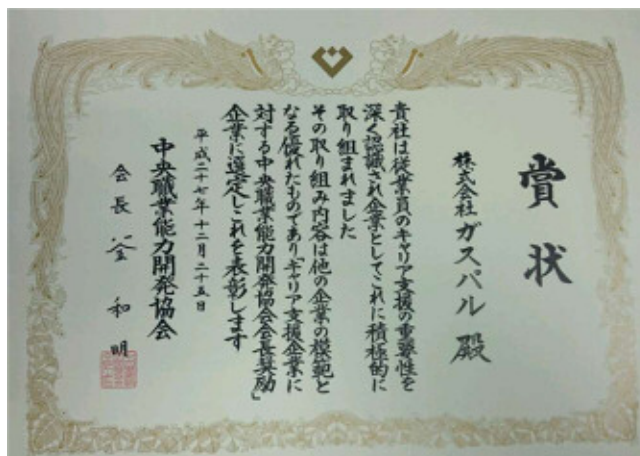 賞状
株式会社ガスパル殿
貴社は従業員のキャリア支援の重要性を
深く認識され企業としてこれに積極的に
取り組まれました
その取り組み内容は他の企業の模範と
なる優れたものであり「キャリア支援企業に
対する中央職業能力開発協会会長奨励」
企業に選定しこれを表彰します
平成二十七年十二月二十五日
中央職業能力開発協会
会長 釡 和明